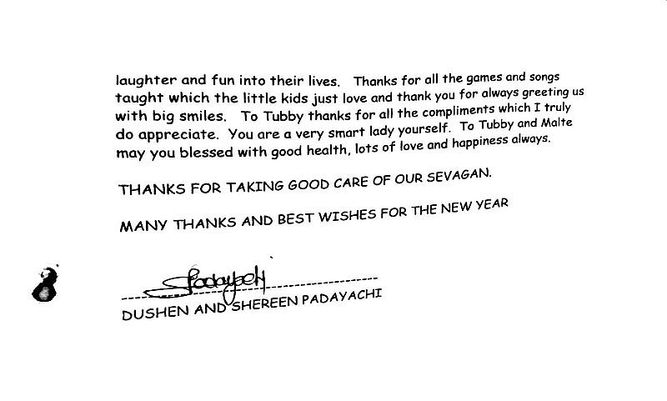 laughter and fun into their lives. Thanks for all the games and songs
taught which the little kids just love and thank you for always greeting us
with big smiles. To Tubby thanks for all the compliments which I truly
do appreciate. You are a very smart lady yourself. To Tubby and Malte
may you blessed with good health, lots of love and happiness always.
THANKS FOR TAKING GOOD CARE OF OUR SEVAGAN.
MANY THANKS AND BEST WISHES FOR THE NEW YEAR
SPadayachi
DUSHEN AND SHEREEN PADAYACHI